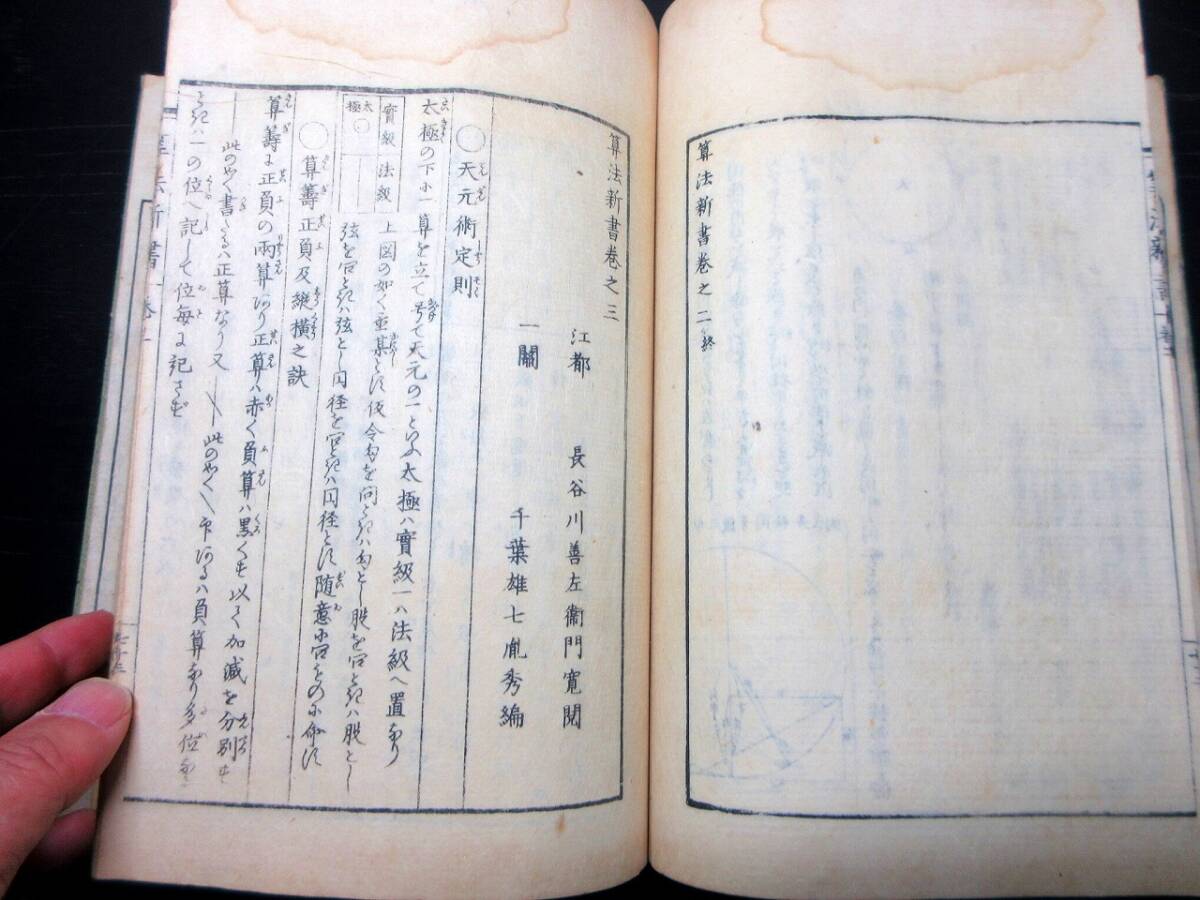 算法新書巻之二終
算法新書巻之三
江都 長谷川善左衞門寛閲
一關 千葉雄七胤秀編
○天元術定則
太極の下に一算を立て号て天元の一といふ太極ハ實級一ハ法級へ置なり
實級 法級
太極○
上図の如く
仮令勾を問ときハ勾とし股を問ときハ股とし
弦を問ときハ弦とし円径を問ときハ円径とす随意に
○算籌正負及縱横之訣
算籌に正負の兩算あり正算ハ赤く負算ハ黒くす以て加減を分別す
此のごとく書たるハ正算なり又 此のごとく ハ負算なり多位
ときハ一の位へ記して位毎に記さず